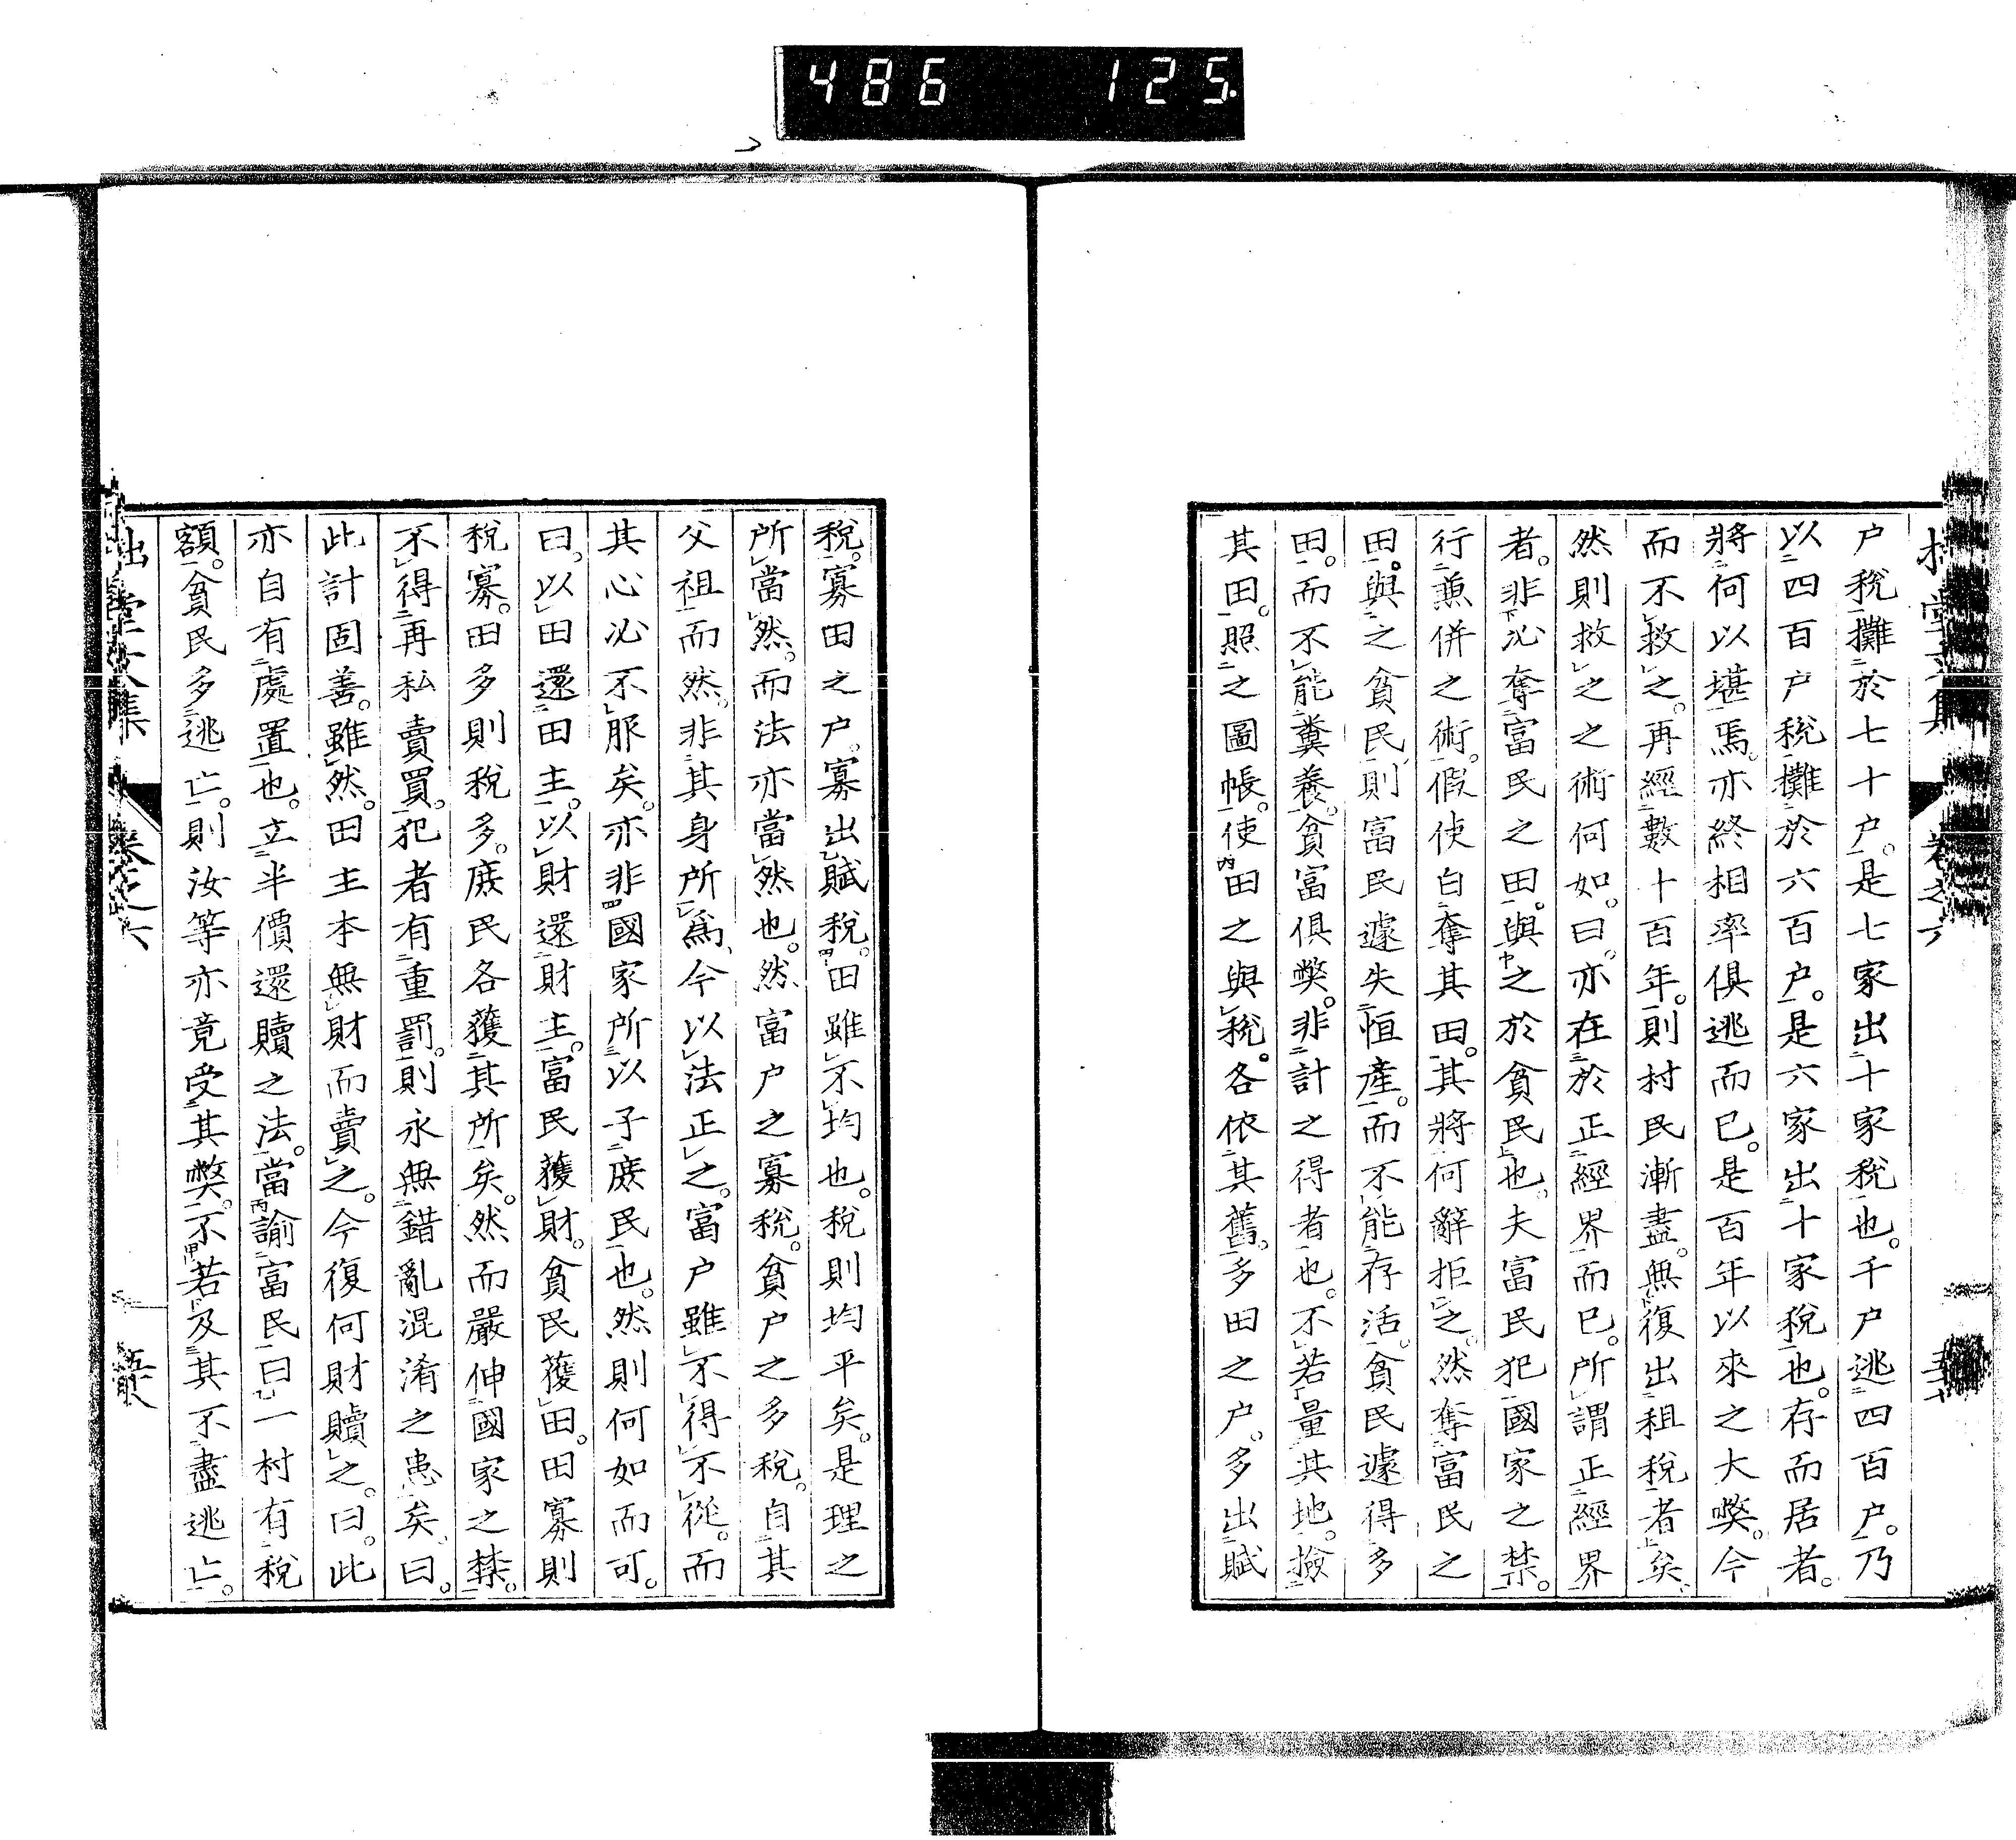 486 125
户稅攤於七十户。是七家出十家稅也。千户逃四百户。乃
以四百户稅攤於六百户。是六家出十家稅也。存而居者。
將何以堪焉。亦終相率俱逃而已。是百年以來之大弊。今
而不救之。再經數十百年。則村民漸盡。無復出租稅者矣。
然則救之之術何如。曰。亦在於正經界而已。所謂正經界
者。非必奪富民之田。與之於貧民也。夫富民犯國家之禁。
行兼併之術。假使白奪其田。其將何辭拒之。然奪富民之
田。與之貧民。則富民遽失恒產。而不能存活。貧民遽得多
田。而不能糞養。貧富俱弊。非計之得者也。不若量其地。撿
其田。照之圖帳。使田之與稅。各依其舊。多田之户。多出賦
稅。寡田之户。寡出賦稅。田雖不均也。稅則均平矣。是理之
所當然。而法亦當然也。然富户之寡稅。貧户之多稅。自其
父祖而然。非其身所爲、今以法正之。富户雖不得不從。而
其心必不服矣。亦非國家所以子庻民也。然則何如而可。
曰。以田還田主。以財還財主。富民獲財。貧民獲田。田寡則
稅寡。田多則稅多。庻民各獲其所矣。然而嚴伸國家之禁。
不得再私賣買。犯者有重罰。則永無錯亂混淆之患矣、曰。
此計固善。雖然。田主本無財而賣之。今復何財贖之。曰。此
亦自有處置也。立半價還贖之法。當諭富民曰一村有稅
額。貧民多逃亡。則汝等亦竟受其弊。不若及其不盡逃亡。
堂文集